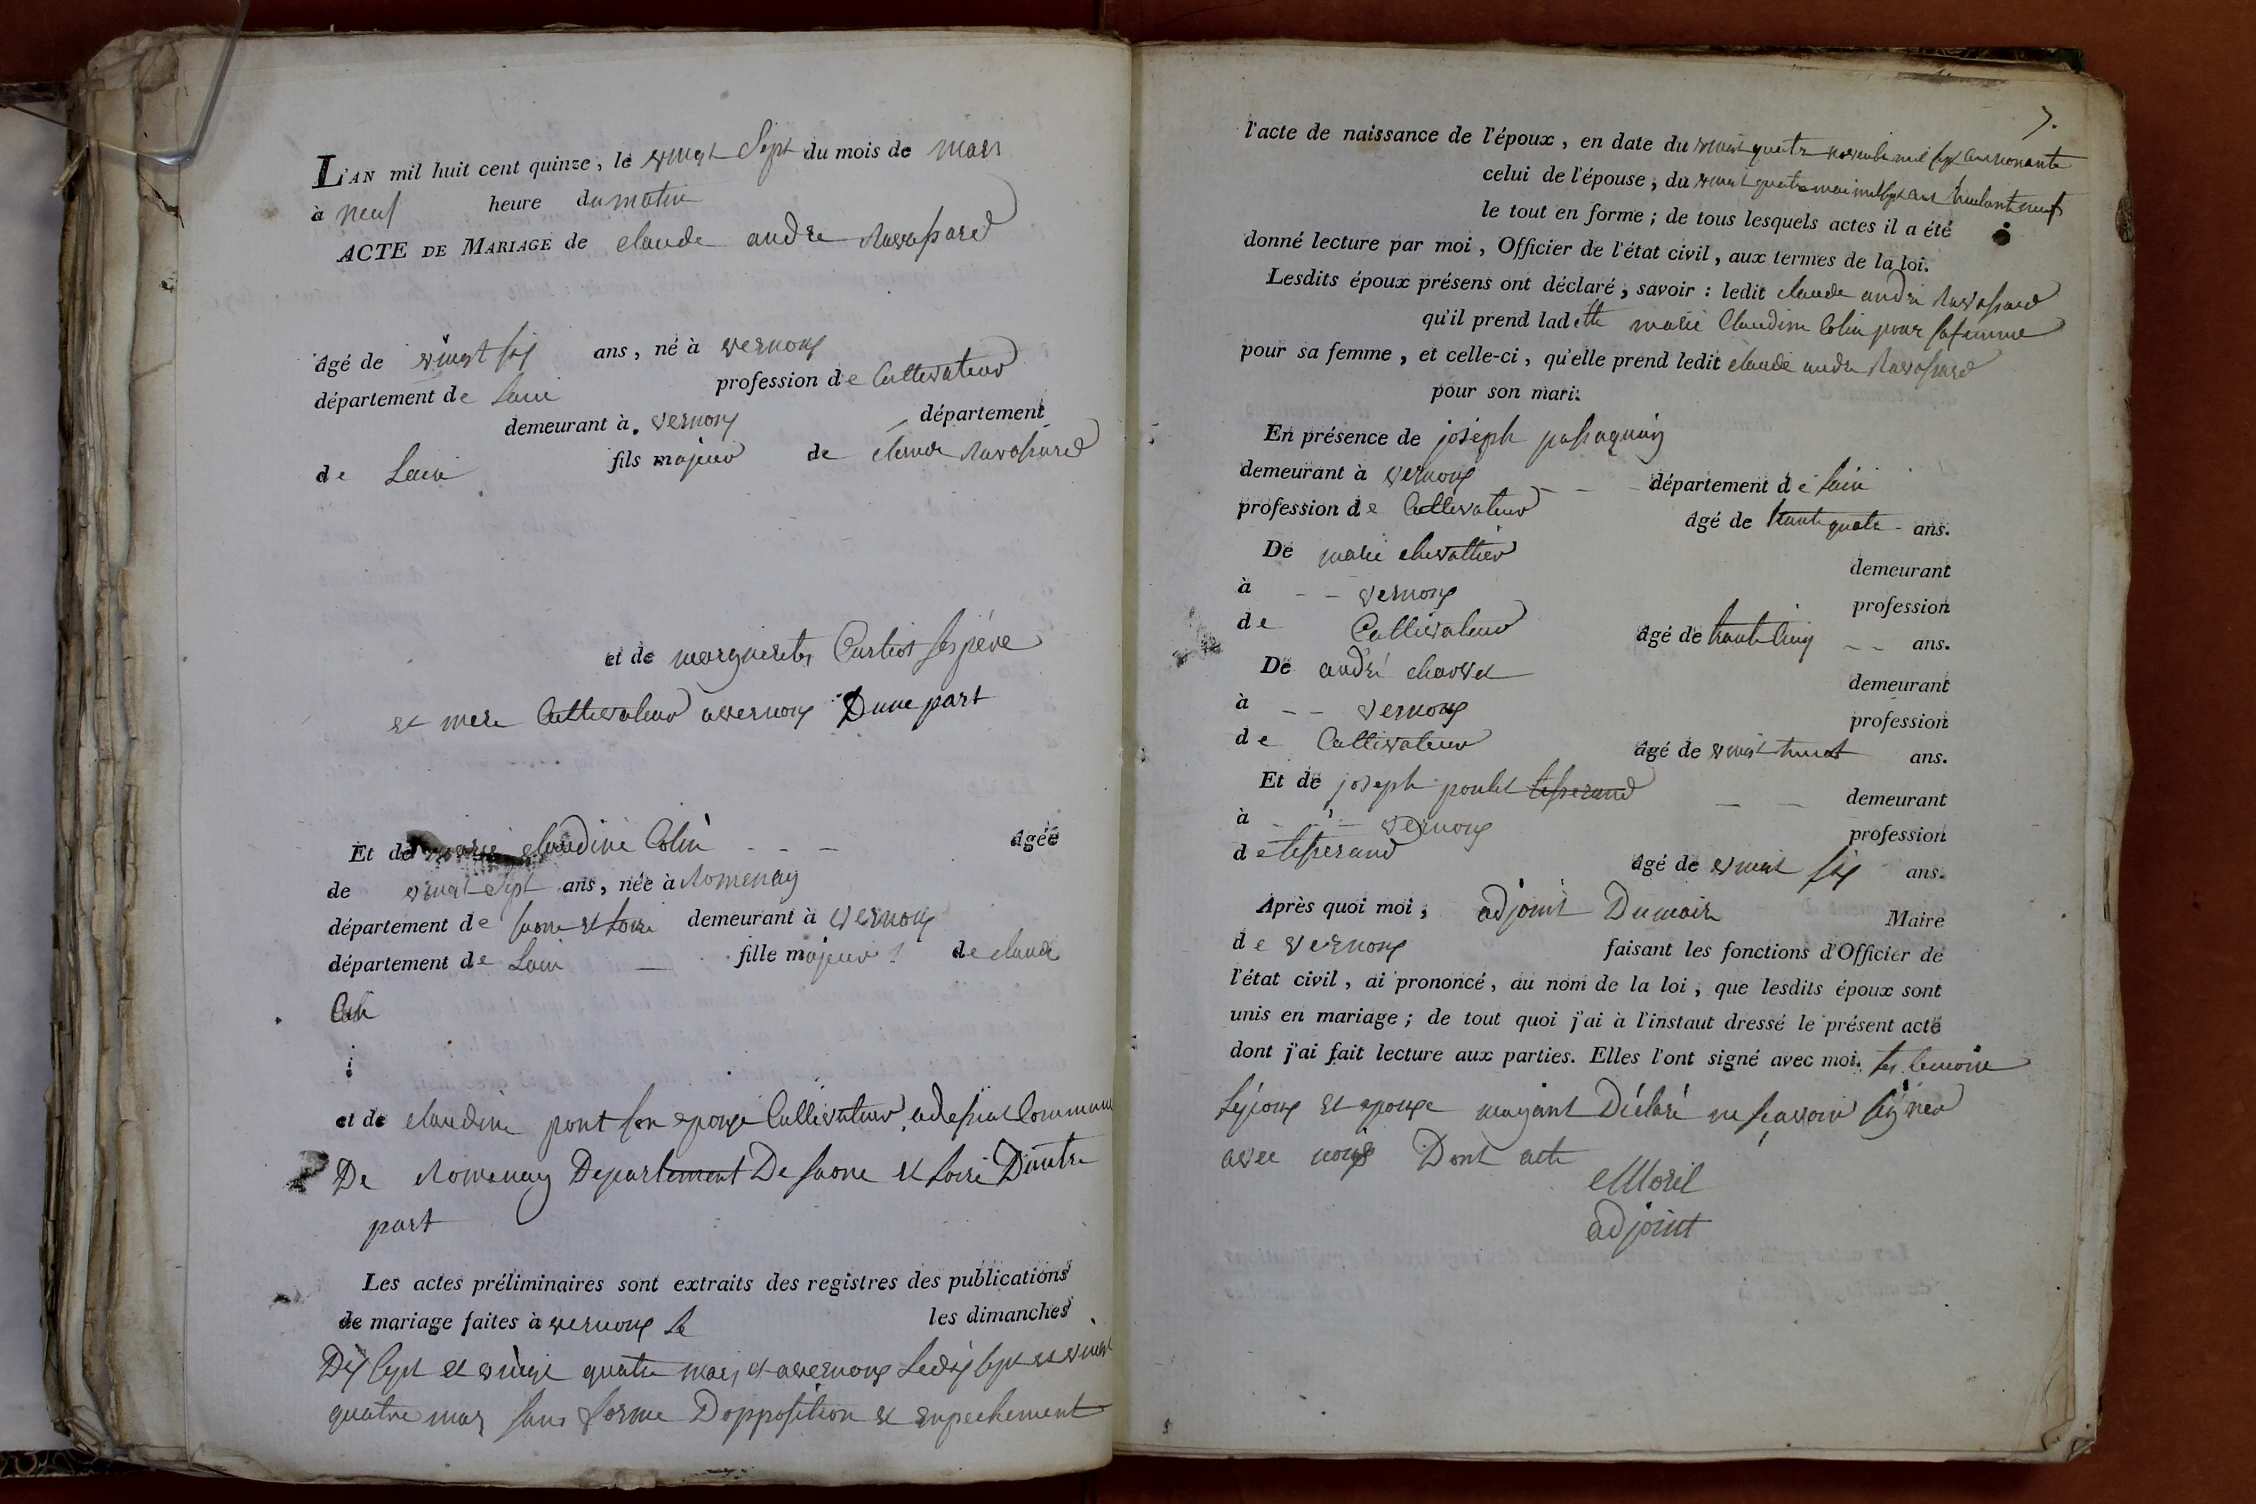 L'AN mil huit cent quinze, le vingt Sept du mois de mars
à neuf heure du matin
ACTE DE MARIAGE de claude andre Ravassard
âgé de vingt six ans, né à vernoux
département de Lain profession de Cultivateur
demeurant à vernoux département
de Lain fils majeur de claude Ravassard
et de marguerite Curtiot ses père
et mere Cultivateur a vernoux D'une part
Et de marie claudine Colin agée
de vingt Sept ans, née à Romenay
département de saone et Loire demeurant à vernoux
département de Lain fille majeur de claude
Colin
et de claudine pont son epouse Cultivateur
De Romenay Departement De saone et Loire D'autre
part
Les actes préliminaires sont extraits des registres des publications
de mariage faites à vernoux Le les dimanches
Dix Sept et vingt quatre mars et a vernoux Le dix sept et vingt
quatre mars sans forme D'opposition et enpechement
7.
l'acte de naissance de l'époux, en date du vingt quatre novembre mil sept cent nonante
celui de l'épouse, du vingt quatre mai mil sept cent huitante neuf
le tout en forme; de tous lesquels actes il a été
donné lecture par moi, Officier de l'état civil, aux termes de la loi.
Lesdits époux présens ont déclaré, savoir: ledit claude andre Ravassard
qu'il prend ladette marie Claudine Colin pour sa femme
pour sa femme, et celle-ci, qu'elle prend ledit claude andre Ravassard
pour son mari.
En présence de joseph passaquay
demeurant à vernoux département de Lain
profession de Cultivateur âgé de trante quatre ans.
De marie chevallier demeurant
à vernoux profession
de Cultivateur âgé de trante Cinq ans.
De andré chavvet demeurant
à vernoux profession
de Cultivateur âgé de vingt huit ans.
Et de joseph poulet tisserand demeurant
à vernoux profession
de tisserand âgé de vingt six ans.
Après quoi moi, adjoint Du maire Maire
de vernoux faisant les fonctions d'Officier de
l'état civil, ai prononcé, au nom de la loi, que lesdits époux sont
unis en mariage; de tout quoi j'ai à l'instaut dressé le présent acte
dont j'ai fait lecture aux parties. Elles l'ont signé avec moi. les temoin
Lepoux et epouse mayant Déclaré ne sçavoir signer
avec nous Dont acte
Morel
adjoint